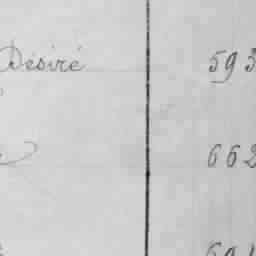 Désiré 593
662